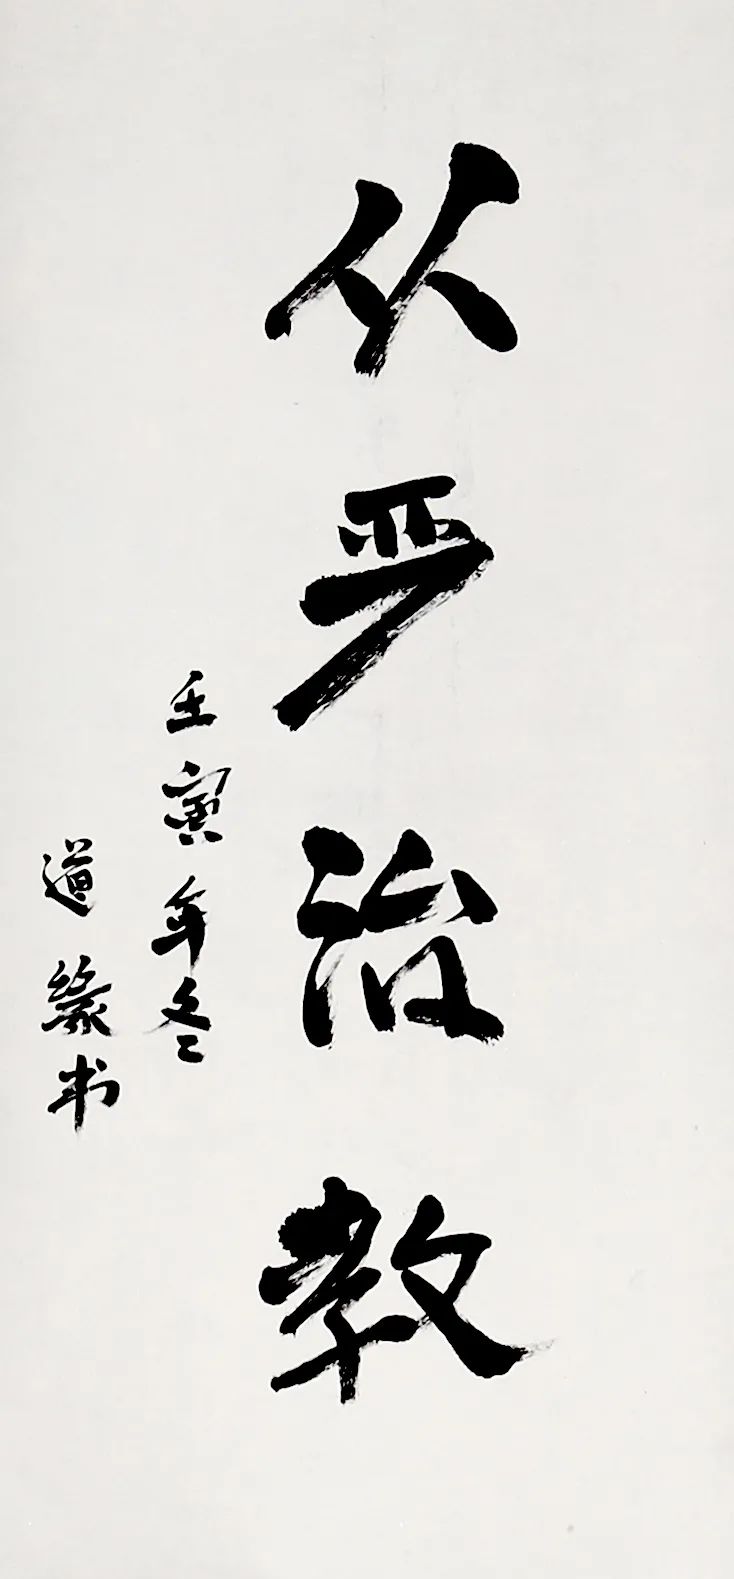 从严治教
壬寅年冬
道缘书